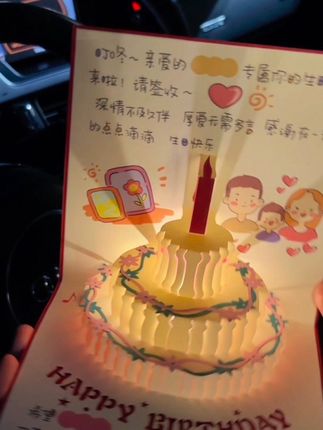 叮咚~ 亲爱的 专属你的生日
来啦！请签收~
深情不及久伴 厚爱无需多言 感谢在一
的点点滴滴 生日快乐
HAPPY BIRTHDAY